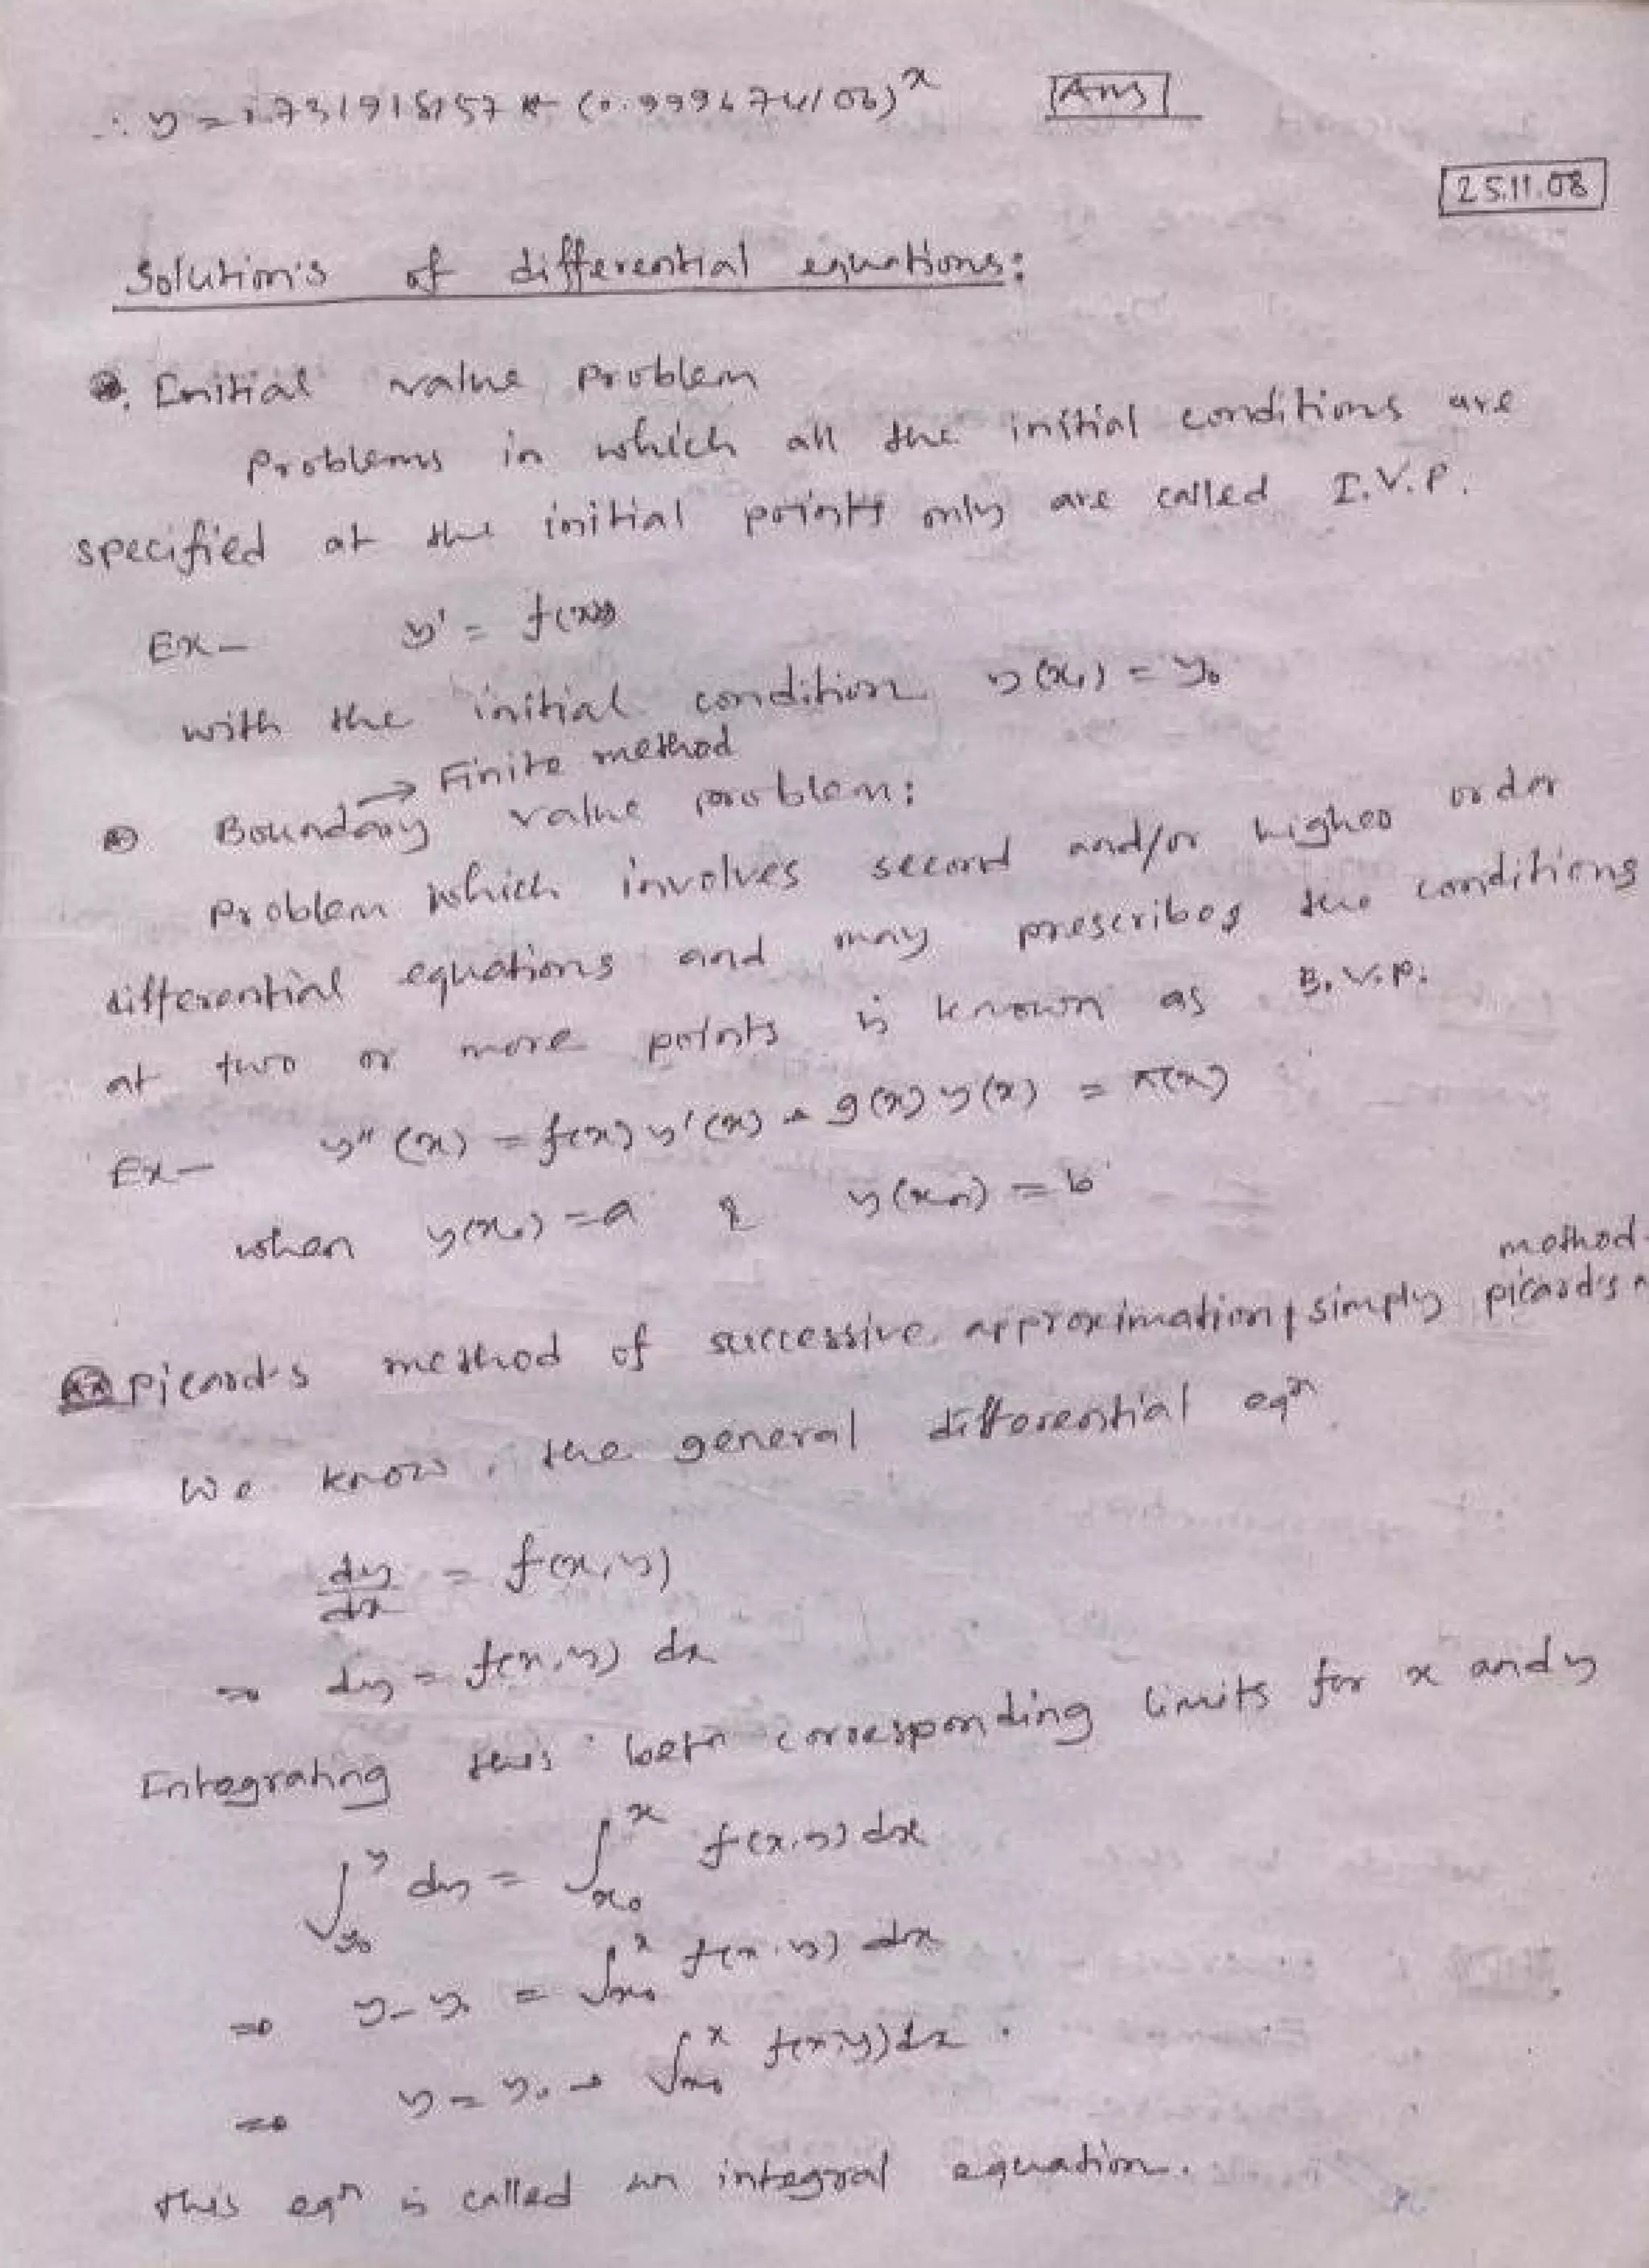 ∴ y = 1.731918157 * (0.999674103)^x [Ans]
25.11.08
Solution's of differential equations:
Initial value problem
Problems in which all the initial conditions are
specified at the initial points only are called I.V.P.
Ex – y' = f(x)
with the initial condition y(x₀) = y₀
→ Finite method
Boundary value problem:
Problem which involves second and/or higher order
differential equations and may prescribes the conditions
at two or more points is known as B.V.P.
Ex – y''(x) = f(x) y'(x) + g(x) y(x) = r(x)
when y(x₀) = a & y(xₙ) = b
method
Picard's method of successive approximation / simply picard's
We know, the general differential eqⁿ
dy/dx = f(x, y)
⇒ dy = f(x, y) dx
Integrating this betⁿ corresponding limits for x and y
∫_{y₀}^{y} dy = ∫_{x₀}^{x} f(x, y) dx
⇒ y - y₀ = ∫_{x₀}^{x} f(x, y) dx
⇒ y = y₀ + ∫_{x₀}^{x} f(x, y) dx.
This eqⁿ is called an integral equation.